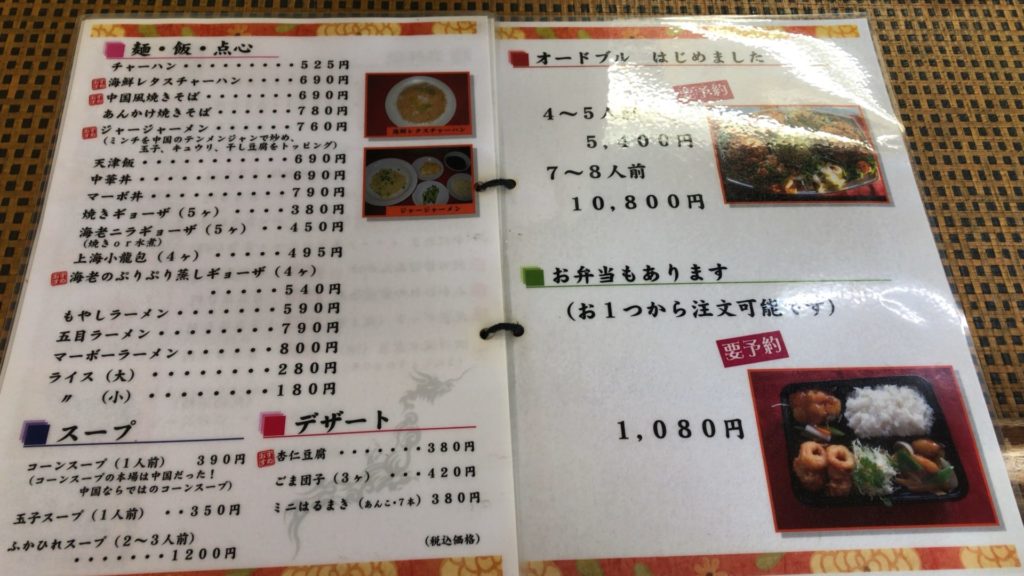 麺・飯・点心
チャーハン・・・・・・・・・525円
おすすめ 海鮮レタスチャーハン ・・・・690円
おすすめ 中国風焼きそば・・・・・・・690円
あんかけ焼きそば・・・・・・780円
おすすめ ジャージャーメン・・・・・・760円
(ミンチを中国のテンメンジャンで炒め、
玉子、キュウリ、干し豆腐をトッピング)
天津飯・・・・・・・・・・・690円
中華丼・・・・・・・・・・・690円
マーボ丼・・・・・・・・・・790円
焼きギョーザ(5ヶ)・・・・380円
海老ニラギョーザ(5ヶ)・・450円
(焼きor水煮)
上海小龍包(4ヶ)・・・・・495円
おすすめ 海老のぷりぷり蒸しギョーザ(4ヶ)
・・・・・・540円
もやしラーメン・・・・・・・590円
五目ラーメン・・・・・・・・790円
マーボーラーメン・・・・・・800円
ライス(大)・・・・・・・・280円
〃 (小)・・・・・・・・180円
海鮮レタスチャーハン
ジャージャーメン
スープ
コーンスープ(1人前) 390円
(コーンスープの本場は中国だった!
中国ならではのコーンスープ)
玉子スープ(1人前) ・・350円
ふかひれスープ(2〜3人前)
・・・・・・1200円
デザート
おすすめ 杏仁豆腐・・・・・・・380円
ごま団子(3ヶ)・・・・420円
ミニはるまき(あんこ・7本)380円
(税込価格)
オードブル はじめました
要予約
4〜5人前
5,400円
7〜8人前
10,800円
お弁当もあります
(お1つから注文可能です)
要予約
1,080円